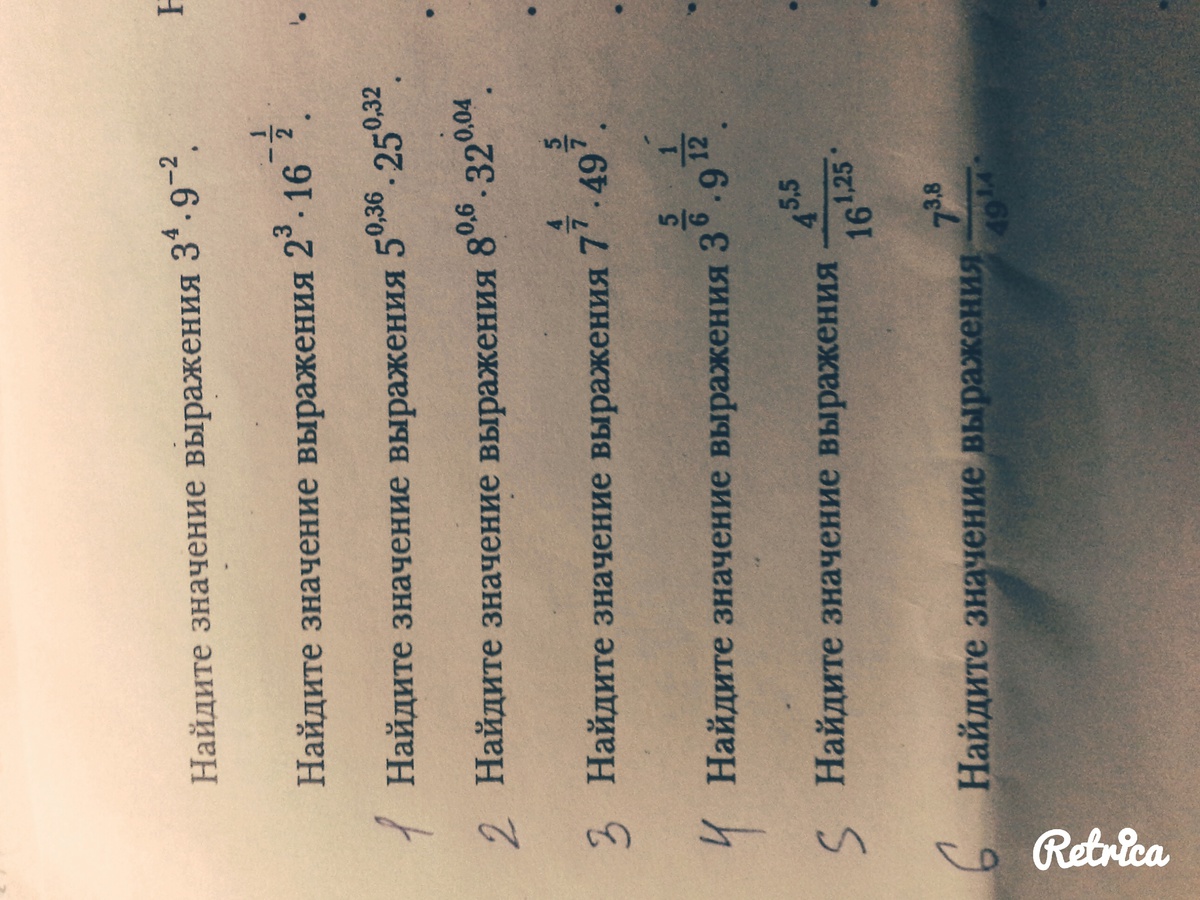 Найдите значение выражения 3⁴ · 9⁻².
Найдите значение выражения 2³ · 16^(-1/2).
1 Найдите значение выражения 5^0,36 · 25^0,32.
2 Найдите значение выражения 8^0,6 · 32^0,04.
3 Найдите значение выражения 7^(4/7) · 49^(5/7).
4 Найдите значение выражения 3^(5/6) · 9^(1/12).
5 Найдите значение выражения 4^5,5/16^1,25.
6 Найдите значение выражения 7^3,8/49^1,4.
Retrica